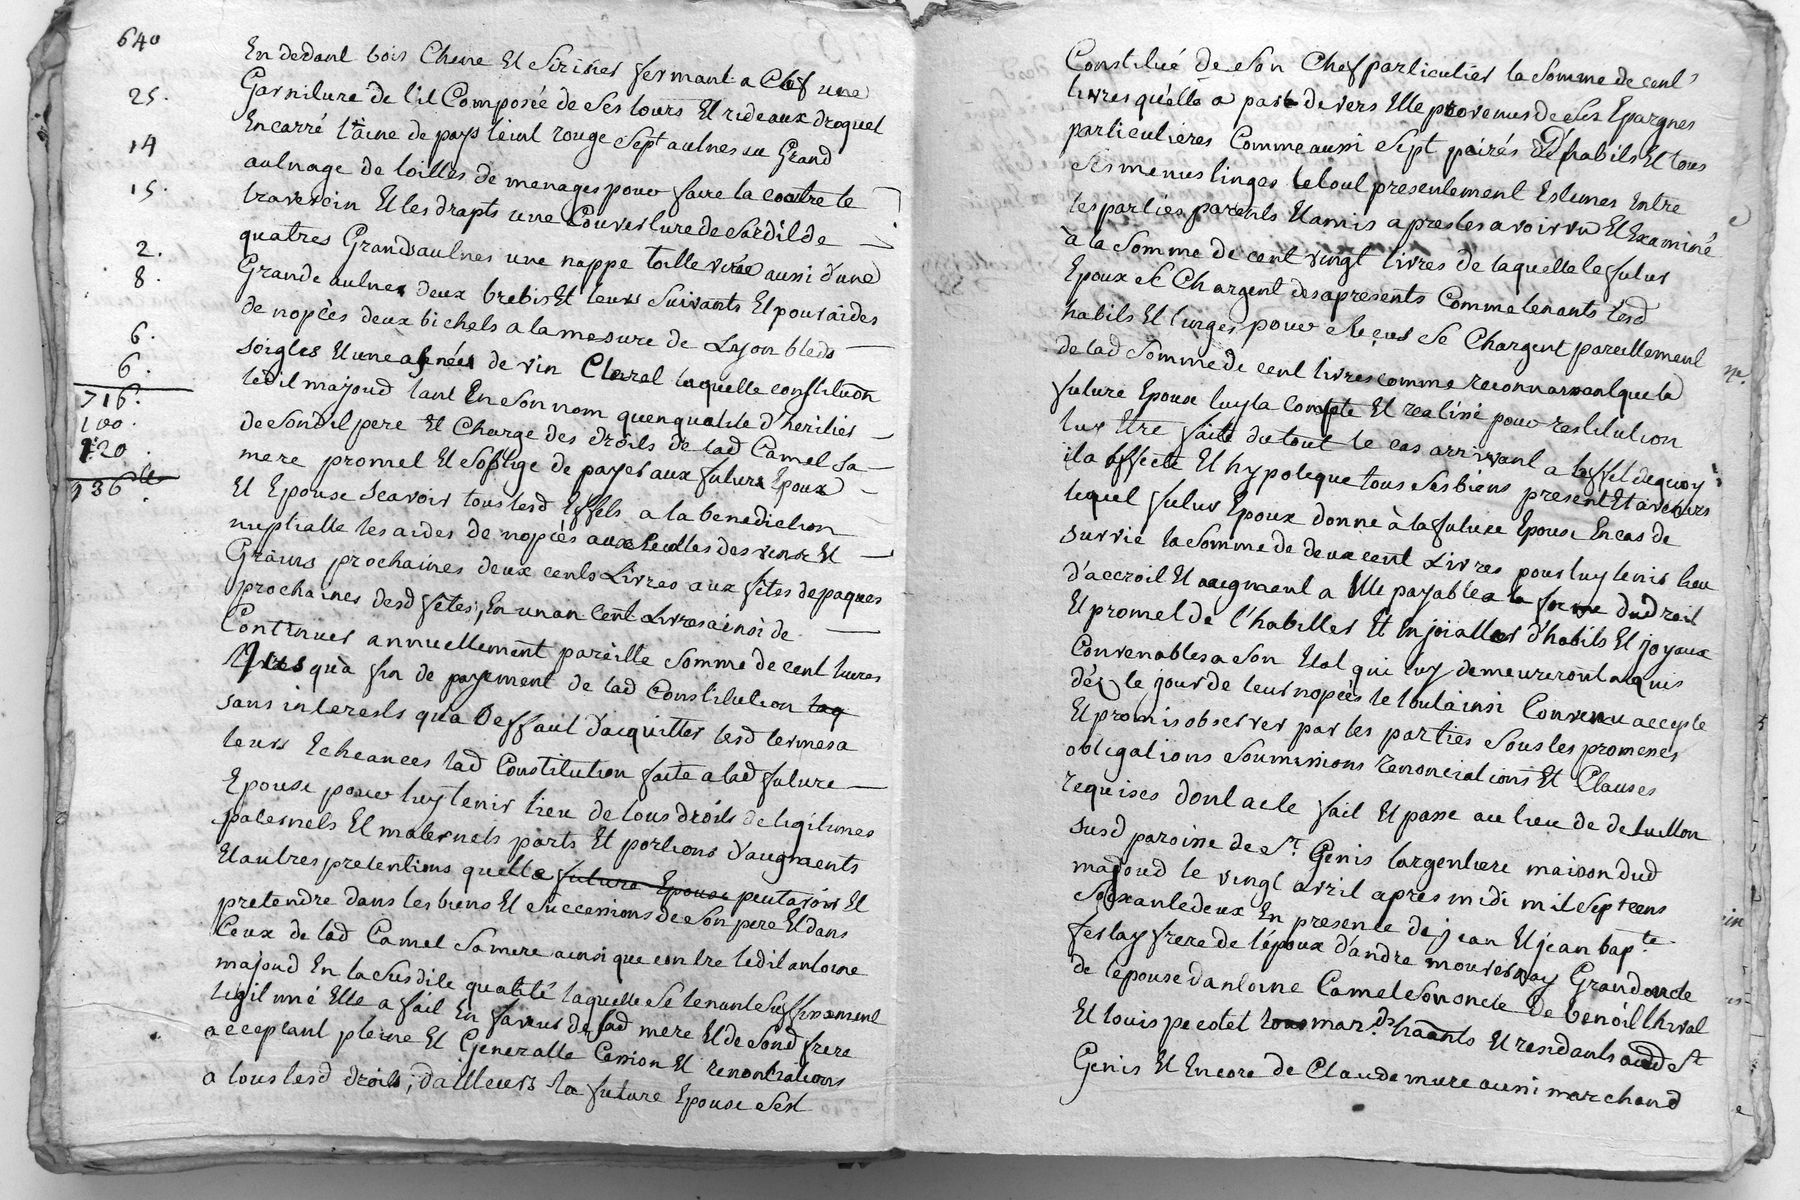 640
25.
14
15.
2.
8.
6.
6.
716.
100.
120.
936 ll.
En dedant bois Chene Et Sirisier fermant a Clef une
Garniture de lit Composée de Ses tours Et rideaux droguet
Encarré laine de pays teint rouge Sept aulnes au Grand
aulnage de toilles de menages pour faire la coatre le
traversin Et les drapts une Couverture de Sardit de
quatres Grands aulnes une nappe toille virée aussi d'une
Grande aulnes deux brebis Et leurs Suivants Et pour aides
de nopces deux bichets a la mesure de Lyon bleds
soigles Et une asnées de vin Clairet laquelle constituon
ledit majoud tant En Son nom quenqualité d'heritier
de Sondit pere Et Charge des droits de lad Camel Sa
mere promet Et Soblige de payer aux futurs Epoux
Et Epouse Scavoir tous lesd Effets a la benediction
nuptialle les aides de nopces aux Recoltes des vins Et
Grains prochaines deux cents Livres aux fêtes de paques
prochaines desd fêtes, En un an Cent Livres ainsi de
Continuer annuellement pareille Somme de cent livres
Jusqu'à fin de payement de lad Constitution laq
sans interests qua Deffaut d'acquitter lesd termes a
leurs Echeances lad Constitution faite a lad future
Epouse pour luy tenir lieu de tous droits de legitimes
paternels Et maternels parts Et portions d'augments
Et autres pretentions quelle future Epouse peut avoir Et
pretendre dans les biens Et Successions de Son pere Et dans
Ceux de lad Camel Samere ainsi que contre ledit antoine
majoud En la Susdite qualité laquelle Se tenante Suffisament
legitimé Elle a fait En faveur de sad mere Et de Sond frere
acceptant pleine Et Generalle Cession Et renontiations
a tous lesd droits; d'ailleurs la future Epouse Sest
Constitué de Son Chef particulier la Somme de cent
livres qu'elle a par de vers Elle provenus de Ses Epargnes
particulieres Comme aussi Sept pairés d'habits Et tous
Ses menus linges le tout presentement Estimés Entre
les parties parents Et amis apres les avoir vu Et Examiné
à la Somme de cent vingt livres de laquelle le futur
Epoux Se Chargent des apresents Comme tenants lesd
habits Et linges pour reçus Se Chargent pareillement
de lad Somme de cent livres comme reconnaissant que la
future Epouse luy la Compte Et realisé pour restitution
luy Etre faite du tout le cas arrivant a leffet dequoy
il a affecté Et hypoteque tous Ses biens present Et avenirs
lequel futur Epoux donne à la future Epouse En cas de
survie la Somme de deux cent Livres pour luy tenir lieu
d'accroit Et augment a Elle payable a la forme du droit
Et promet de l'habiller Et Enjoialler d'habits Et joyaux
Convenables a Son Etat qui luy demeureront acquis
dés le jour de leur nopces le tout ainsi Convenu accepte
Et promis observer par les parties Sous les promeses
obligations Soumissions renonciations Et Clauses
requises dont acte fait Et passe au lieu de
susd paroisse de St. Genis largentiere maison dud
majoud le vingt avril apres midi mil Sept cens
Soixante deux En presence de jean Et jean bapte.
ferlay frere de l'époux d'andré Grand oncle
de l'epouse d'antoine Camel Son oncle de benoit thival
Et louis pecotet mar.ds hāants Et residants aud St
Genis Et Encore de Claude mure aussi marchand